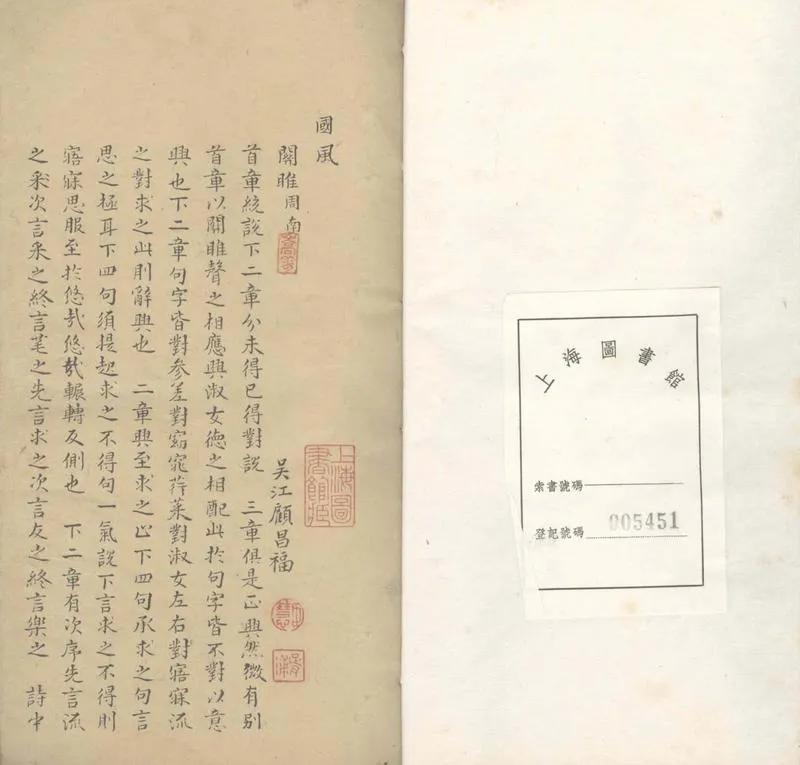 國風
關雎周南
吳江顧昌福
首章統說下二章分未得已得對說 三章俱是正興然微有別
首章以關雎聲之相應興淑女德之相配此於句字皆不對以意
興也下二章句字皆對參差對窈窕荇菜對淑女左右對寤寐流
之對求之此則辭興也 二章興至求之止下四句承求之句言
思之極耳下四句須提起求之不得句一氣說下言求之不得則
寤寐思服至於悠哉悠哉輾轉反側也 下二章有次序先言流
之采次言采之終言芼之先言求之次言友之終言樂之 詩中
上海圖書館藏
上海圖書館
索書號碼
登記號碼 005451